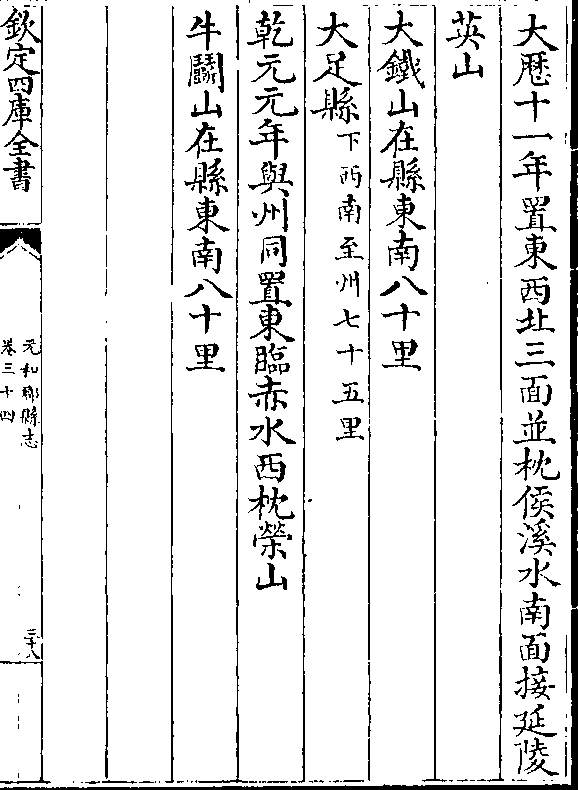 大厯十一年置東西北三面並枕侯溪水南面接延陵
英山
大鐵山在縣東南八十里
大足縣下西南至州七十五里
乾元元年與州同置東臨赤水西枕榮山
牛鬬山在縣東南八十里
欽定四庫全書
元和郡縣志
卷三十四
三十八